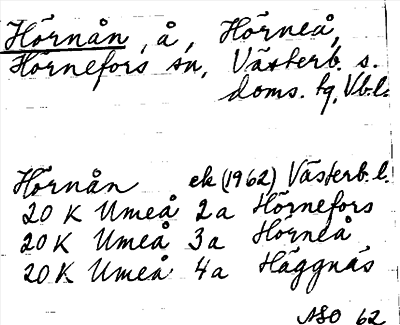 Hörnån, å, Hörneå,
Hörnefors sn, Västerb. s.
doms. tg, Vb.l.
Hörnån ek (1962) Västerb. l.
20 K Umeå 2a Hörnefors
20 K Umeå 3a Hörneå
20 K Umeå 4a Häggnäs
ASO 62